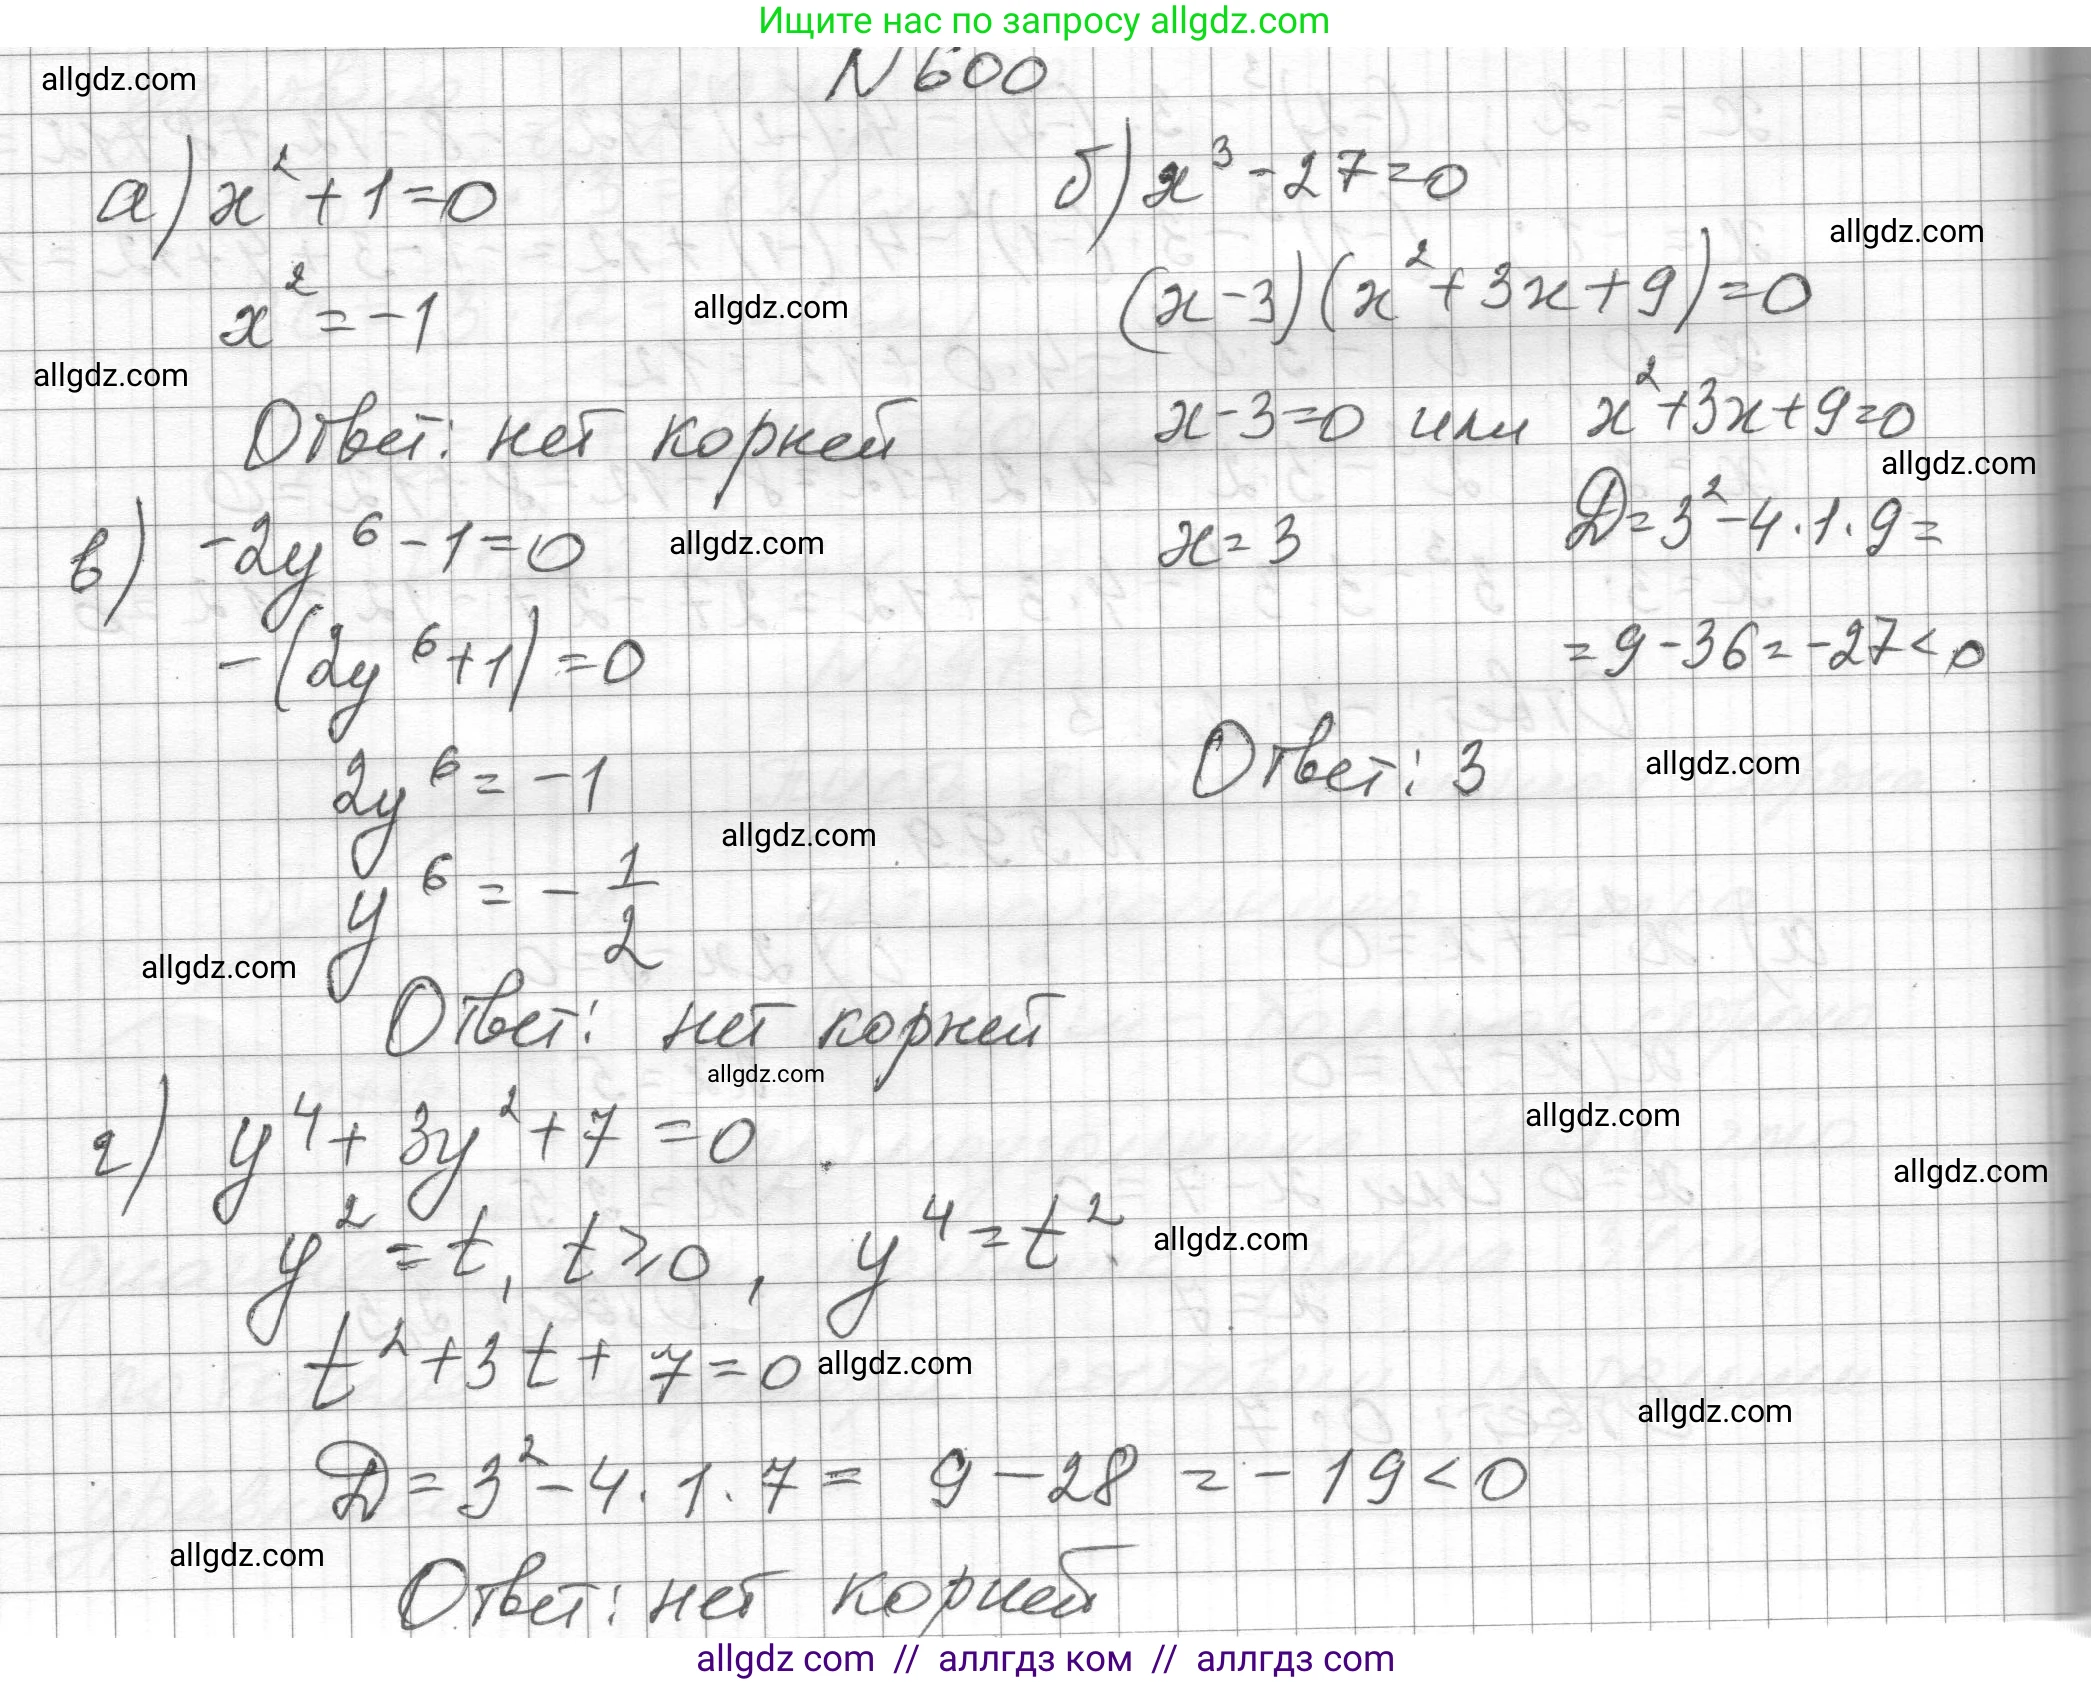 Ищите нас по запросу allgdz.com
N 600
allgdz.com
а) x² + 1 = 0
x² = -1
allgdz.com
allgdz.com
Ответ: нет корней
б) x³ - 27 = 0
allgdz.com
(x - 3)(x² + 3x + 9) = 0
x - 3 = 0 или x² + 3x + 9 = 0
allgdz.com
x = 3
D = 3² - 4 · 1 · 9 =
= 9 - 36 = -27 < 0
Ответ: 3
allgdz.com
в) -2y⁶ - 1 = 0
allgdz.com
-(2y⁶ + 1) = 0
2y⁶ = -1
allgdz.com
y⁶ = -1/2
allgdz.com
Ответ: нет корней
allgdz.com
г) y⁴ + 3y² + 7 = 0
allgdz.com
allgdz.com
y² = t, t ⩾ 0, y⁴ = t²
allgdz.com
t² + 3t + 7 = 0
allgdz.com
allgdz.com
D = 3² - 4 · 1 · 7 = 9 - 28 = -19 < 0
allgdz.com
Ответ: нет корней
allgdz com // аллгдз ком // аллгдз com